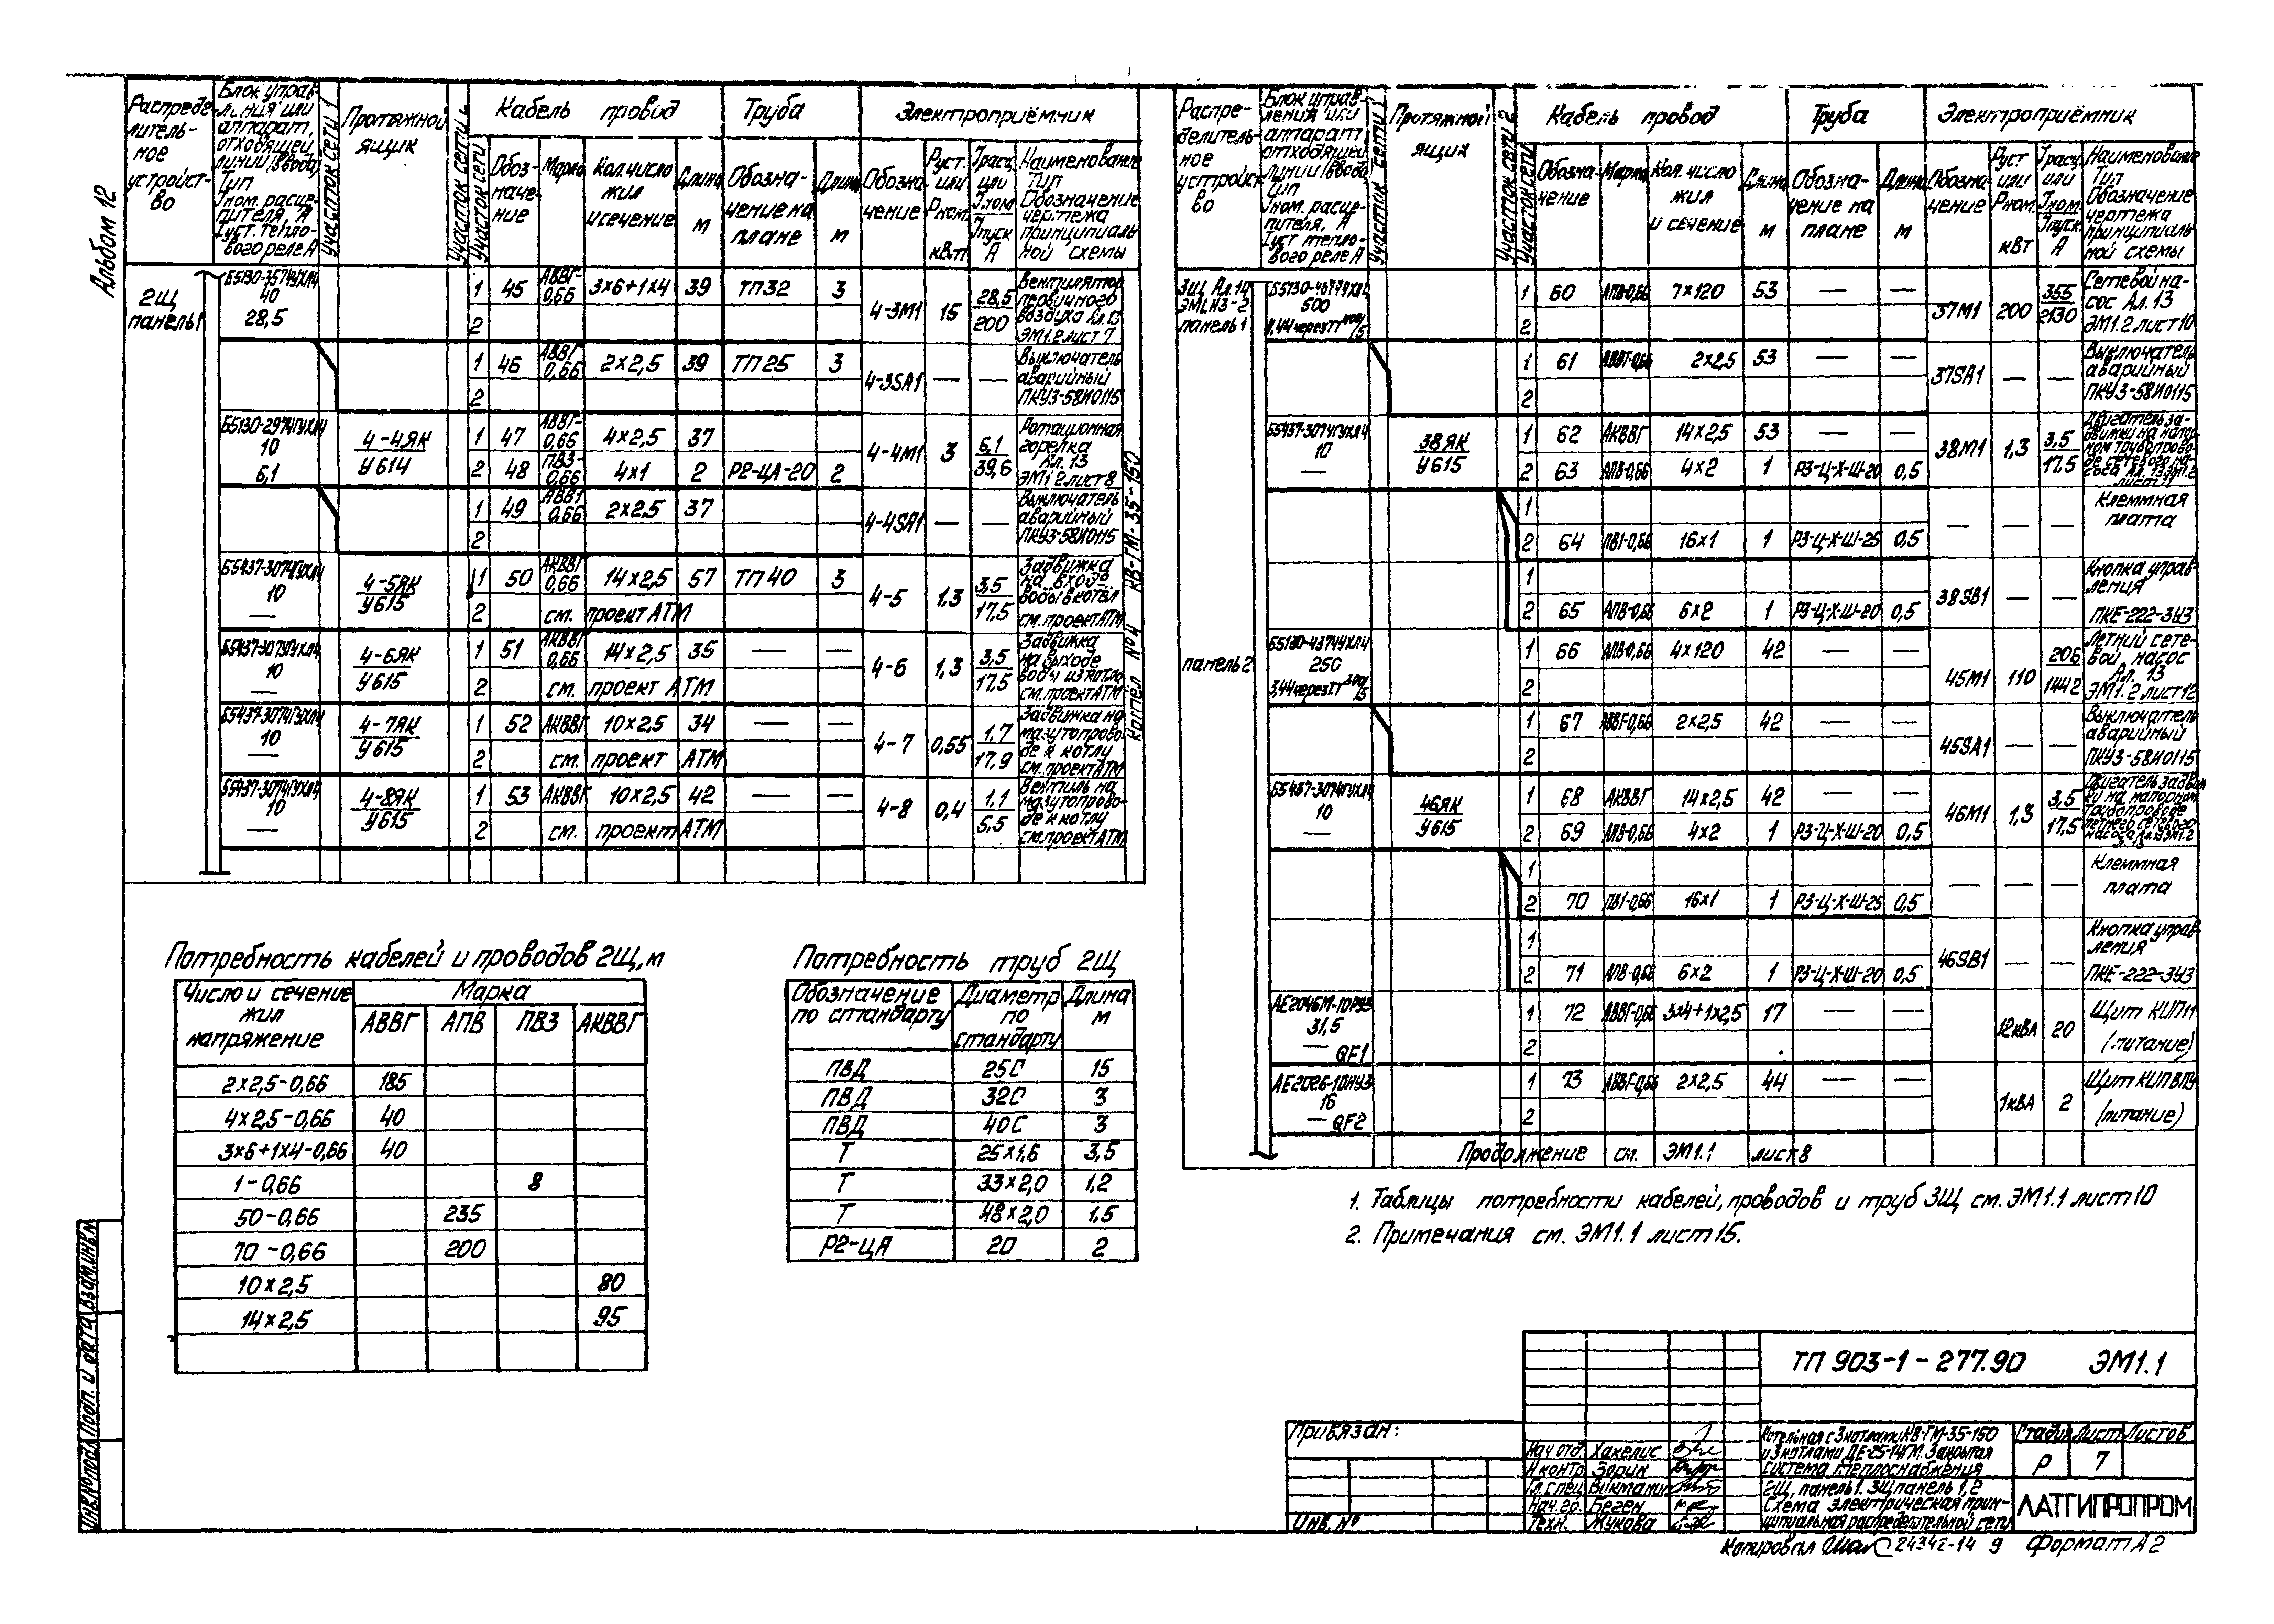 Альбом 12
Распреде-
литель-
ное
устройст-
во
Блок управ-
ления или
аппарат,
отходящей
линии (ввода)
Тип
Iном. расце-
пителя, А
Iуст. тепло-
вого реле А
Участок сети 1
Протяжной
ящик
Участок сети 2
Участок сети
Кабель провод
Труба
Электроприёмник
Обоз-
наче-
ние
Марка
Кол. число
жил
и сечение
Длина
м
Обозна-
чение на
плане
Длина
м
Обозна-
чение
Руст.
или
Рном.
кВт
Iрасч.
или
Iном
Iпуск
А
Наименование
Тип
Обозначение
чертежа
принципиаль-
ной схемы
2Щ
панель 1
Б5130-3574УХЛ4
40
28,5
1 45 АВВГ-0,66 3×6+1×4 39 ТП32 3
2
4-3М1 15 28,5/200
Вентилятор
первичного
воздуха Ал.13
ЭМ1.2 лист 7
1 46 АВВГ-0,66 2×2,5 39 ТП25 3
2
4-3SA1 — —
Выключатель
аварийный
ПКУ3-58И0115
Б5130-2974ГУХЛ4
10
6,1
4-4ЯК
У614
1 47 АВВГ-0,66 4×2,5 37
2 48 ПВ3-0,66 4×1 2 Р2-ЦА-20 2
4-4М1 3 6,1/39,6
Ротационная
горелка
Ал. 13
ЭМ1.2 лист 8
1 49 АВВГ 0,66 2×2,5 37
2
4-4SA1 — —
Выключатель
аварийный
ПКУ3-58И0115
Б5437-3074ГУХЛ4
10
—
4-5ЯК
У615
1 50 АКВВГ 0,66 14×2,5 57 ТП40 3
2 см. проект АТМ
4-5 1,3 3,5/17,5
Задвижка
на входе
воды в котёл
см. проект АТМ
Б5437-3073ГУХЛ4
10
—
4-6ЯК
У615
1 51 АКВВГ 0,66 14×2,5 35 — —
2 см. проект АТМ
4-6 1,3 3,5/17,5
Задвижка
на выходе
воды из котла
см. проект АТМ
Б5437-3074ГУХЛ4
10
—
4-7ЯК
У615
1 52 АКВВГ 10×2,5 34 — —
2 см. проект АТМ
4-7 0,55 1,7/17,9
Задвижка на
мазутопрово-
де к котлу
см. проект АТМ
Б5437-3074ГУХЛ4
10
—
4-8ЯК
У615
1 53 АКВВГ 10×2,5 42 — —
2 см. проект АТМ
4-8 0,4 1,1/5,5
Вентиль на
мазутопрово-
де к котлу
см. проект АТМ
Котел №4 КВ-ГМ-35-150
Потребность кабелей и проводов 2Щ, м
Число и сечение
жил
напряжение
Марка
АВВГ АПВ ПВ3 АКВВГ
2×2,5-0,66 185
4×2,5-0,66 40
3×6+1×4-0,66 40
1-0,66 8
50-0,66 235
70-0,66 200
10×2,5 80
14×2,5 95
Потребность труб 2Щ
Обозначение
по стандарту
Диаметр
по
стандарту
Длина
м
ПВД 25С 15
ПВД 32С 3
ПВД 40С 3
Т 25×1,6 3,5
Т 33×2,0 1,2
Т 48×2,0 1,5
Р2-ЦА 20 2
Распре-
делитель-
ное
устройст
во
Блок управ-
ления или
аппарат
отходящей
линии (ввода)
Тип
Iном. расце-
пителя, А
Iуст тепло-
вого реле А
Участок сети 1
Протяжной
ящик
Участок сети 2
Участок сети
Кабель провод
Труба
Электроприёмник
Обозна-
чение
Марка
Кол. число
жил
и сечение
Длина
м
Обозна-
чение на
плане
Длина
м
Обозна-
чение
Руст
или
Рном.
кВт
Iрасч.
или
Iном.
Iпуск.
А
Наименование
Тип
Обозначение
чертежа
принципиаль-
ной схемы
3Щ Ал.14
панель 1
500
1 60 АПВ-0,66 7×120 53 — —
2
37М1 200 355/2130
Сетевой на-
сос Ал. 13
ЭМ1.2 лист 10
1 61 АВВГ-0,66 2×2,5 53 — —
2
37SA1 — —
Выключатель
аварийный
ПКУ3-58И0115
Б5437-3074ГУХЛ4
10
—
38ЯК
У615
1 62 АКВВГ 14×2,5 53 — —
2 63 АПВ-0,66 4×2 1 Р3-Ц-Х-Ш-20 0,5
38М1 1,3 3,5/17,5
Двигатель за-
движки на напор-
ном трубопрово-
де сетевого на-
соса Ал. 13 ЭМ1.2
лист 11
1
2 64 ПВ1-0,66 16×1 1 Р3-Ц-Х-Ш-25 0,5
— — —
Клеммная
плата
1
2 65 АПВ-0,66 6×2 1 Р3-Ц-Х-Ш-20 0,5
38SB1 — —
Кнопка управ-
ления
ПКЕ-222-3У3
панель 2
Б5130-4374УХЛ4
250
3,44 через ТТ 300/5
1 66 АПВ-0,66 4×120 42 — —
2
45М1 110 206/1442
Летний сете-
вой насос
Ал. 13
ЭМ1.2 лист 12
1 67 АВВГ-0,66 2×2,5 42 — —
2
45SA1 — —
Выключатель
аварийный
ПКУ3-58И0115
Б5437-3074ГУХЛ4
10
—
46ЯК
У615
1 68 АКВВГ 14×2,5 42 — —
2 69 АПВ-0,66 4×2 1 Р3-Ц-Х-Ш-20 0,5
46М1 1,3 3,5/17,5
Двигатель задвиж
ки на напорном
трубопроводе
летнего сетевого
насоса Ал.13 ЭМ1.2
л. 13
1
2 70 ПВ1-0,66 16×1 1 Р3-Ц-Х-Ш-25 0,5
— — —
Клеммная
плата
1
2 71 АПВ-0,66 6×2 1 Р3-Ц-Х-Ш-20 0,5
46SB1 — —
Кнопка управ-
ления
ПКЕ-222-3У3
АЕ2046М-10РУ3
31,5
— QF1
1 72 АВВГ-0,66 3×4+1×2,5 17 — —
2
12кВА 20
Щит КИПиА
(питание)
АЕ2026-10НУ3
16
— QF2
1 73 АВВГ-0,66 2×2,5 44 — —
2
1кВА 2
Щит КИП ВПУ
(питание)
Продолжение см. ЭМ1.1 лист 8
1. Таблицы потребности кабелей, проводов и труб 3Щ см. ЭМ1.1 лист 10
2. Примечания см. ЭМ1.1 лист 15.
ТП 903-1-277.90 ЭМ1.1
Привязан:
Инв. №
Нач. отд. Хакелис
Н.контр. Зорин
Гл. спец.
Нач. гр. Беген
Техн. Жукова
Котельная с 3 котлами КВ-ГМ-35-150
и 3 котлами ДЕ-25-14ГМ. Закрытая
система теплоснабжения
2Щ, панель 1. 3Щ панель 1, 2
Схема электрическая прин-
ципиальная распределительной сети
Стадия Лист Листов
Р 7
ЛАТГИПРОПРОМ
Копировал
9 Формат А2
Инв.№ подл. Подп. и дата Взам.инв.№